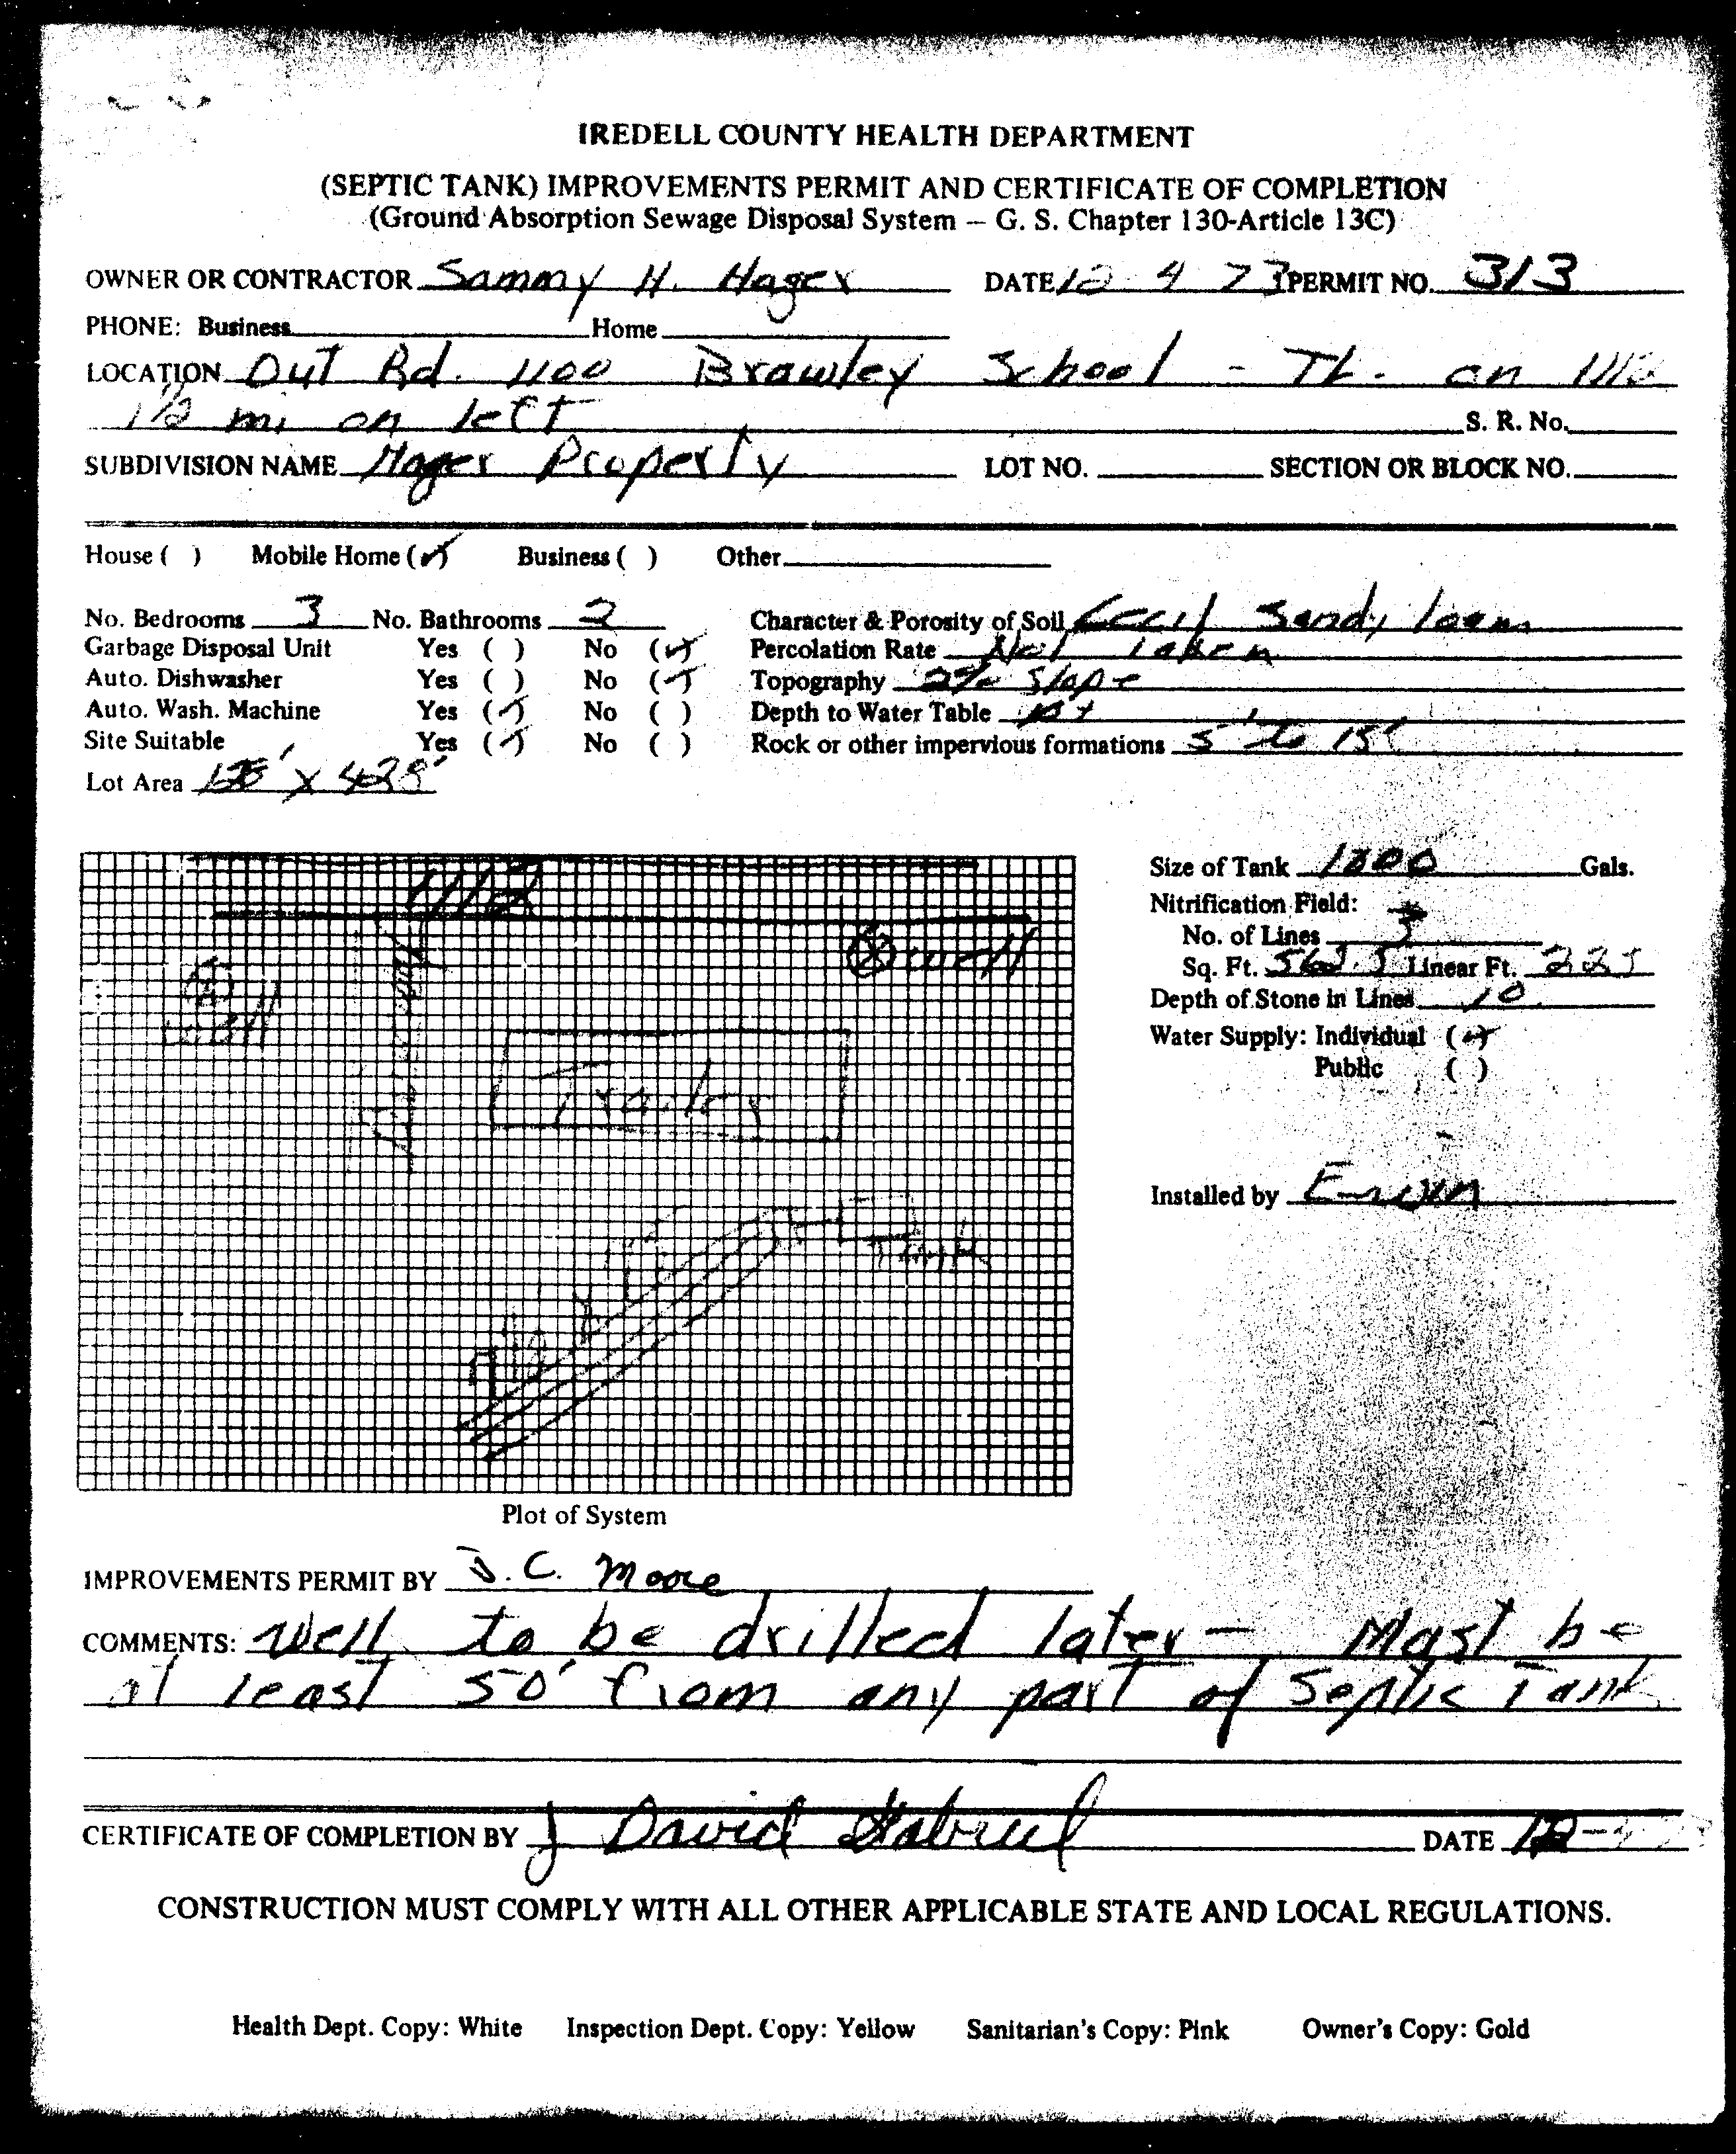 IREDELL COUNTY HEALTH DEPARTMENT
(SEPTIC TANK) IMPROVEMENTS PERMIT AND CERTIFICATE OF COMPLETION
(Ground Absorption Sewage Disposal System – G. S. Chapter 130-Article 13C)
OWNER OR CONTRACTOR Sammy H. Hager DATE 12 4 73 PERMIT NO. 313
PHONE: Business Home
LOCATION Out Rd. 1100 Brawley School - TL. on 1112
1/2 mi on left S. R. No.
SUBDIVISION NAME Hager Property LOT NO. SECTION OR BLOCK NO.
House ( ) Mobile Home (✓) Business ( ) Other
No. Bedrooms 3 No. Bathrooms 2 Character & Porosity of Soil Cecil Sandy loam
Garbage Disposal Unit Yes ( ) No (✓) Percolation Rate Not Taken
Auto. Dishwasher Yes ( ) No (✓) Topography 2% Slope
Auto. Wash. Machine Yes (✓) No ( ) Depth to Water Table
Site Suitable Yes (✓) No ( ) Rock or other impervious formations 5' to 15'
Lot Area x 428'
Size of Tank 1000 Gals.
Nitrification Field:
No. of Lines 3
Sq. Ft. 562.5 Linear Ft. 225
Depth of Stone in Lines 10
Water Supply: Individual (✓)
Public ( )
Installed by
1112
well
well
Trailer
Tank
Plot of System
IMPROVEMENTS PERMIT BY J. C. Moore
COMMENTS: Well to be drilled later - Must be
at least 50' from any part of Septic Tank
CERTIFICATE OF COMPLETION BY J David Gabriel DATE 12-
CONSTRUCTION MUST COMPLY WITH ALL OTHER APPLICABLE STATE AND LOCAL REGULATIONS.
Health Dept. Copy: White Inspection Dept. Copy: Yellow Sanitarian's Copy: Pink Owner's Copy: Gold